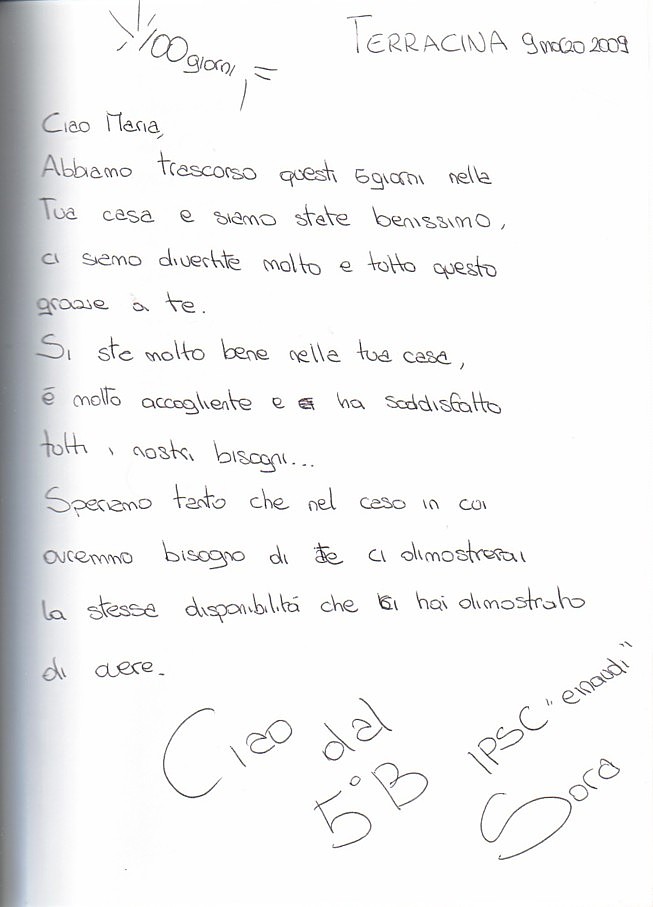 100 giorni
TERRACINA 9 marzo 2009
Ciao Maria,
Abbiamo trascorso questi 5 giorni nella
Tua casa e siamo state benissimo,
ci siamo divertite molto e tutto questo
grazie a te.
Si sta molto bene nella tua casa,
è molto accogliente e ha soddisfatto
tutti i nostri bisogni...
Speriamo tanto che nel caso in cui
avremmo bisogno di te ci dimostrerai
la stessa disponibilità che ci hai dimostrato
di avere.
Ciao dal
5°B
IPSC "einaudi"
Sora